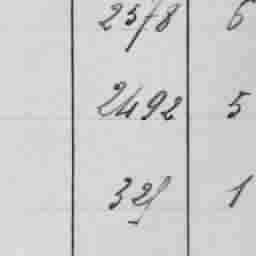 2578 6
2492 5
325 1